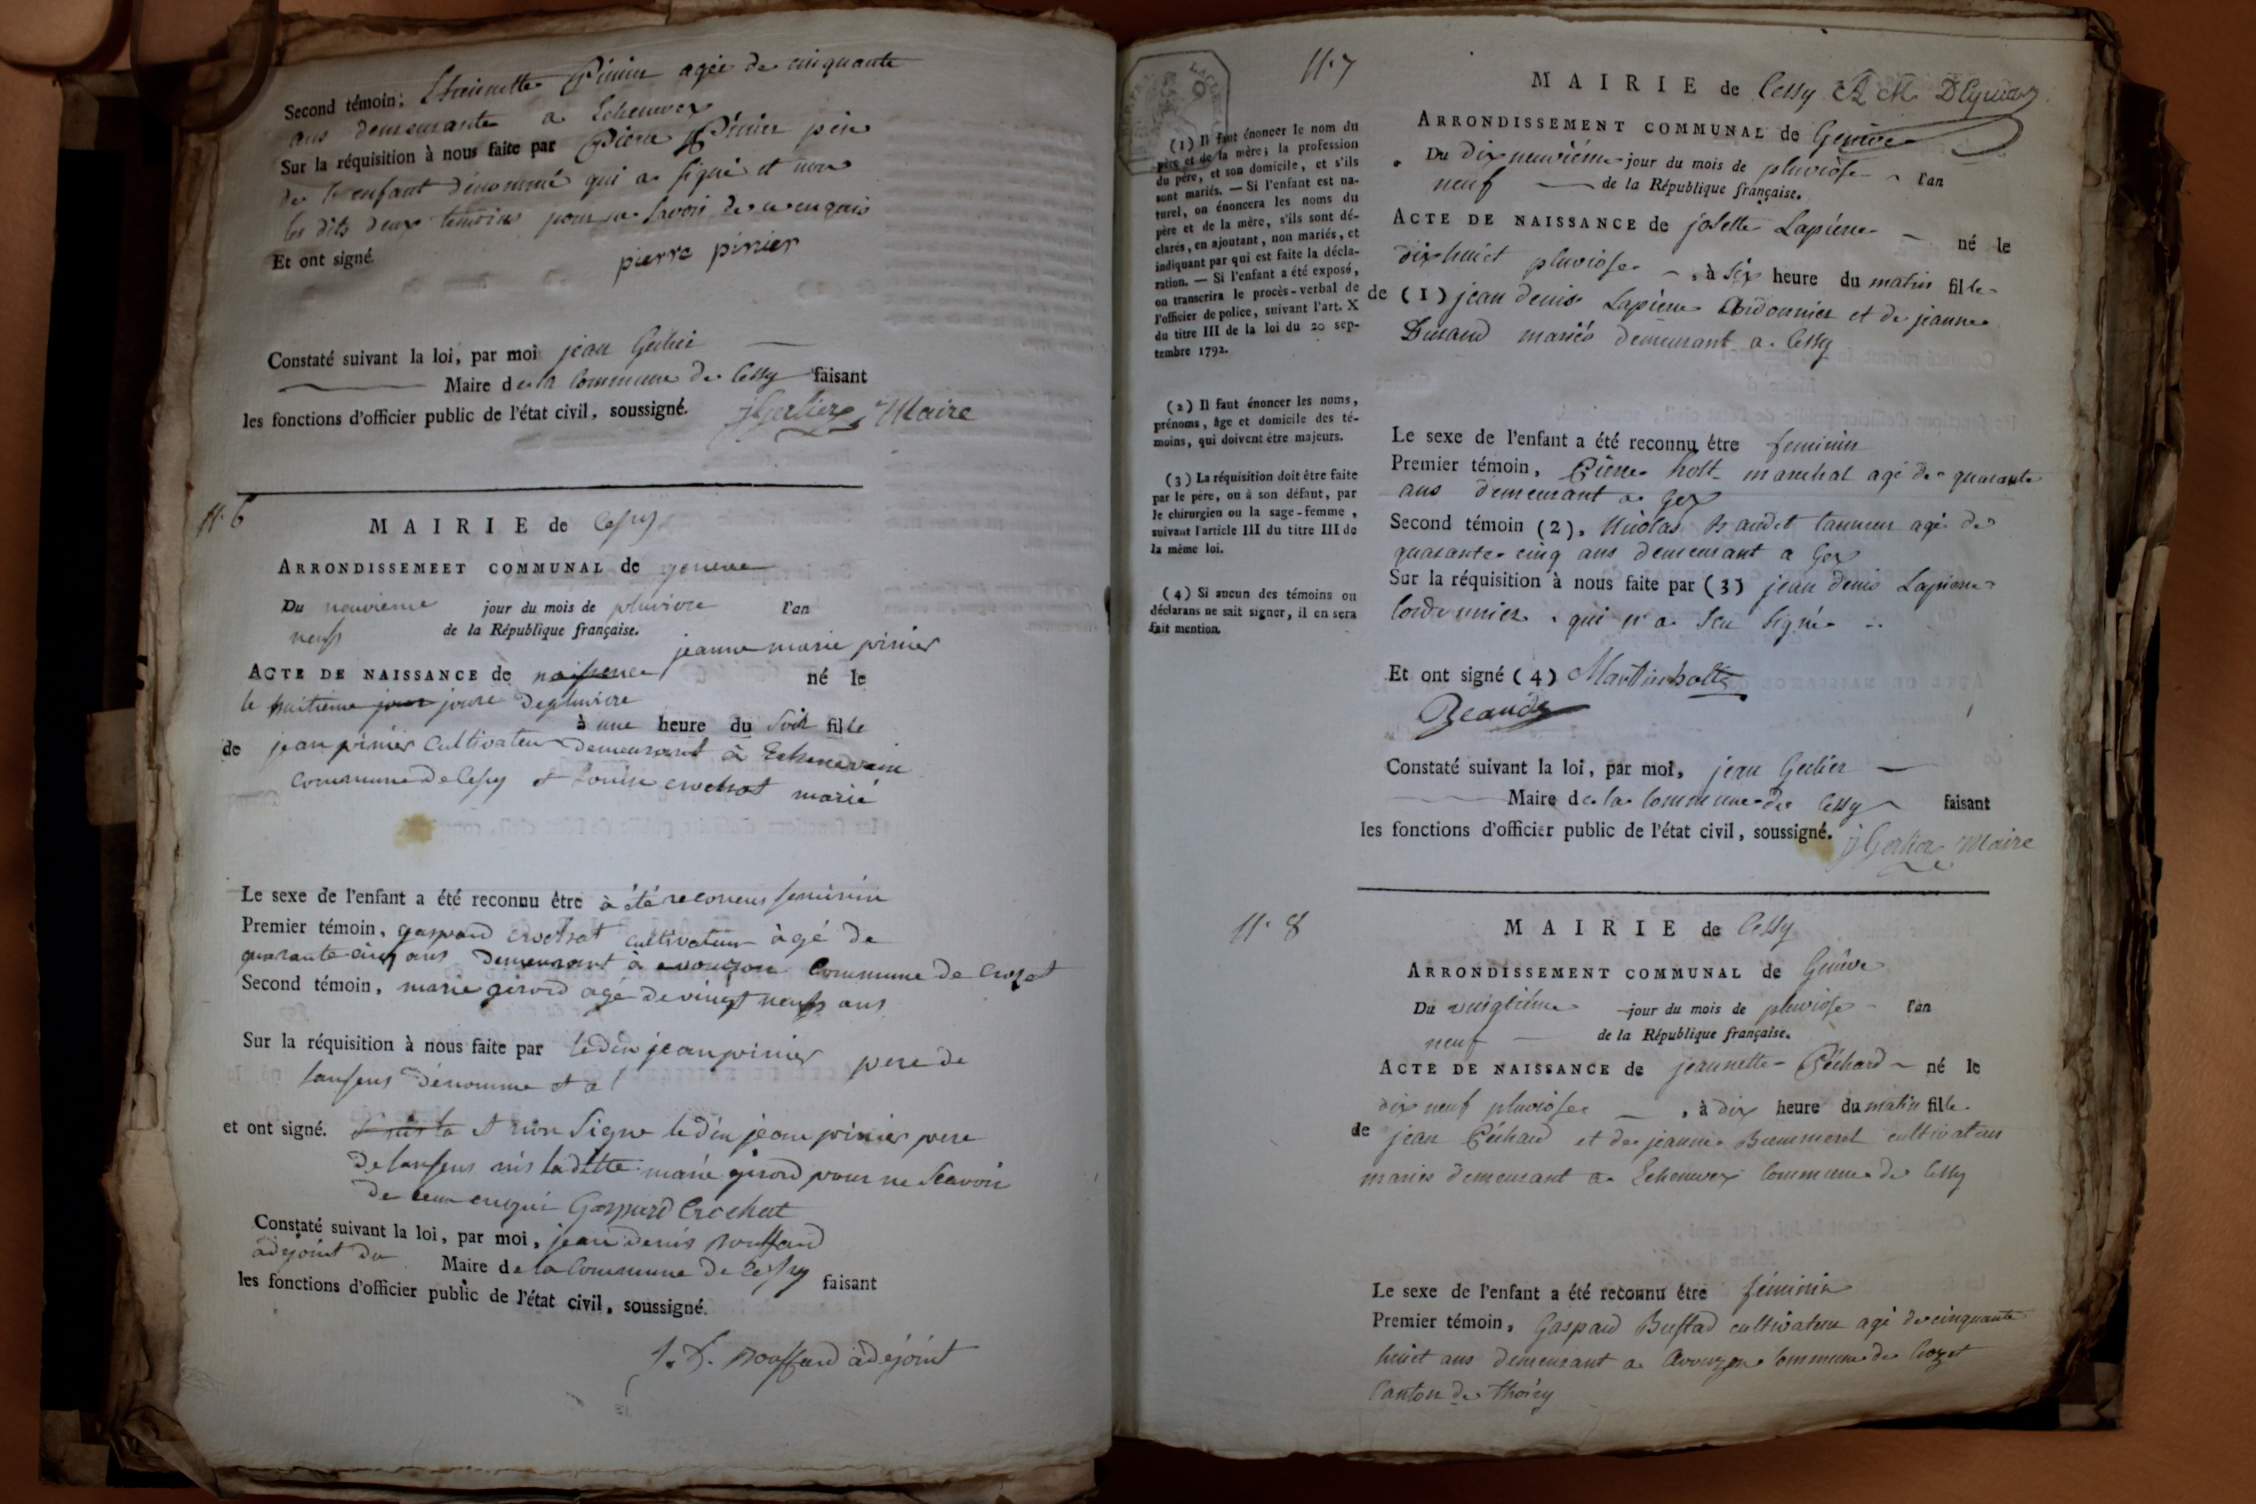 Second témoin; Pinier agée de cinquante
ans demeurante a Echenevex
Sur la réquisition à nous faite par Pierre Pinier père
de l'enfant dénommé qui a signé et non
les dits deux témoins pour ne savoir de ce enquis
Et ont signé pierre pinier
Constaté suivant la loi, par moi jean Gerlier
Maire de la Commune de Cessy faisant
les fonctions d'officier public de l'état civil, soussigné. J Gerlier Maire
N. 6
MAIRIE de Cessy
ARRONDISSEMEET COMMUNAL de geneve
Du neuvieme jour du mois de pluviose l'an
neufs de la République française.
jeanne marie pinier
ACTE DE NAISSANCE de naissence né le
le huitieme jour joure de pluviore
à une heure du soir fille
de jean pinier Cultivateur demeurant à Echenevein
Commune de Cessy et Louise crochat marié
Le sexe de l'enfant a été reconnu être à été reconeus feminin
Premier témoin, gaspard crochat cultivateur àgé de
quarante cinq ans demeurant à avouson Commune de Crozet
Second témoin, marie girord agé de vingt neufs ans
Sur la réquisition à nous faite par ledin jean pinier pere de
lanfens dénomme et a
et ont signé. et non Signe ledin jean pinier pere
de lanfens nis laditte marie girord pour ne scavoir
de ceux enquis Gaspard Crochat
Constaté suivant la loi, par moi, jean denis Rouffard
adejoint du Maire de la Commune de Cessy faisant
les fonctions d'officier public de l'état civil, soussigné.
J. D. Rouffard adejoint
N. 7
MAIRIE de Cessy
ARRONDISSEMENT COMMUNAL de Genève
Du dix neuvième jour du mois de pluviôse l'an
neuf de la République française.
ACTE DE NAISSANCE de josette Lapierre né le
dixhuict pluviose, à six heure du matin fille
de (1) jean denis Lapierre Cordonnier et de jeanne
Durand mariés demeurant a Cessy
(1) Il faut énoncer le nom du
père et de la mère; la profession
du père, et son domicile, et s'ils
sont mariés. — Si l'enfant est na-
turel, on énoncera les noms du
père et de la mère, s'ils sont dé-
clarés, en ajoutant, non mariés, et
indiquant par qui est faite la décla-
ration. — Si l'enfant a été exposé,
on transcrira le procès-verbal de
l'officier de police, suivant l'art. X
du titre III de la loi du 20 sep-
tembre 1792.
(2) Il faut énoncer les noms,
prénoms, âge et domicile des té-
moins, qui doivent être majeurs.
(3) La réquisition doit être faite
par le père, ou à son défaut, par
le chirurgien ou la sage-femme,
suivant l'article III du titre III de
la même loi.
(4) Si aucun des témoins ou
déclarans ne sait signer, il en sera
fait mention.
Le sexe de l'enfant a été reconnu être feminin
Premier témoin, Pierre holt marechal agé de quarante
ans demeurant a Gex
Second témoin (2), Nicolas Baudet tanneur agé de
quarante cinq ans demeurant a Gex
Sur la réquisition à nous faite par (3) jean denis Lapierre
Cordonnier qui n'a seu signé
Et ont signé (4) Martin holtz
Constaté suivant la loi, par moi, jean Gerlier
Maire de la Commune de Cessy faisant
les fonctions d'officier public de l'état civil, soussigné. J Gerlier Maire
N. 8
MAIRIE de Cessy
ARRONDISSEMENT COMMUNAL de Genève
Du vingtième jour du mois de pluviose l'an
neuf de la République française.
ACTE DE NAISSANCE de jeannette Péchard né le
dix neuf pluviose, à dix heure du matin fille
de jean Péchard et de jeanne cultivateur
mariés demeurant a Echenevex Commune de Cessy
Le sexe de l'enfant a été reconnu être féminin
Premier témoin, Gaspard cultivateur agé de cinquante
huict ans demeurant a Avouzon Commune de Crozet
Canton de Thoiry